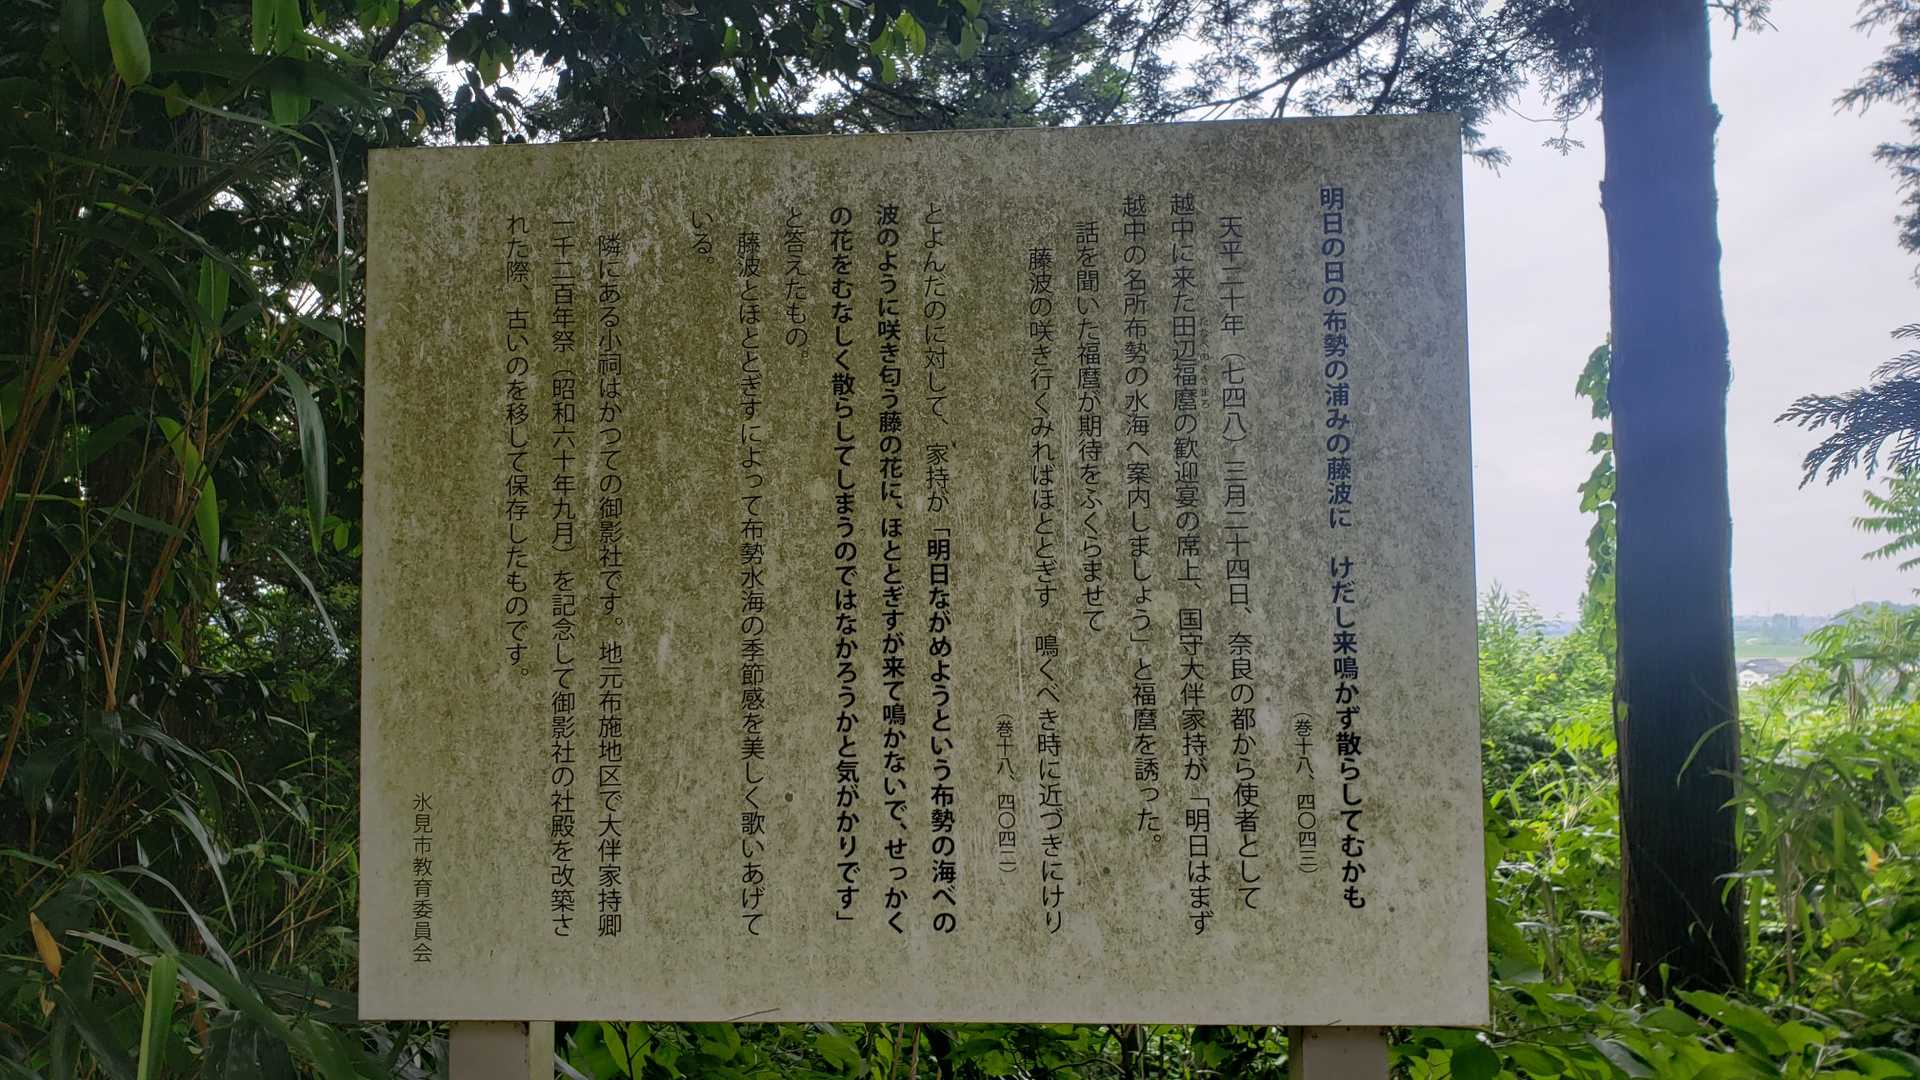 明日の日の布勢の浦みの藤波に　けだし来鳴かず散らしてむかも
（巻十八、四〇四三）
天平二十年（七四八）三月二十四日、奈良の都から使者として
越中に来た田辺福麿の歓迎宴の席上、国守大伴家持が「明日はまず
たなべのさきまろ
越中の名所布勢の水海へ案内しましょう」と福麿を誘った。
話を聞いた福麿が期待をふくらませて
藤波の咲き行くみればほととぎす　鳴くべき時に近づきにけり
（巻十八、四〇四二）
とよんだのに対して、家持が「明日ながめようという布勢の海べの
波のように咲き匂う藤の花に、ほととぎすが来て鳴かないで、せっかく
の花をむなしく散らしてしまうのではなかろうかと気がかりです」
と答えたもの。
藤波とほととぎすによって布勢水海の季節感を美しく歌いあげて
いる。
隣にある小祠はかつての御影社です。地元布施地区で大伴家持卿
一千二百年祭（昭和六十年九月）を記念して御影社の社殿を改築さ
れた際、古いのを移して保存したものです。
氷見市教育委員会